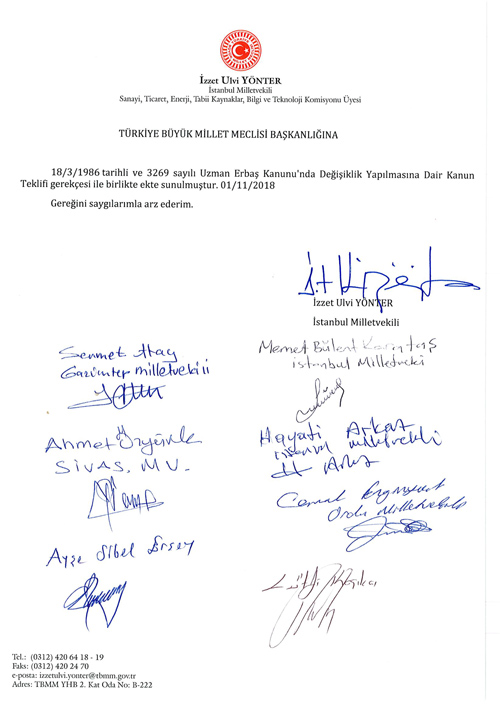 İzzet Ulvi YÖNTER
İstanbul Milletvekili
Sanayi, Ticaret, Enerji, Tabii Kaynaklar, Bilgi ve Teknoloji Komisyonu Üyesi
TÜRKİYE BÜYÜK MİLLET MECLİSİ BAŞKANLIĞINA
18/3/1986 tarihli ve 3269 sayılı Uzman Erbaş Kanunu'nda Değişiklik Yapılmasına Dair Kanun
Teklifi gerekçesi ile birlikte ekte sunulmuştur. 01/11/2018
Gereğini saygılarımla arz ederim.
İzzet Ulvi YÖNTER
İstanbul Milletvekili
Sermet Atay
Gaziantep Milletvekili
Memet Bülent Karataş
istanbul Milletveki
Ahmet Özyürek
SİVAS. MV.
Hayati Arkaz
milletvekili
Cemal Enginyurt
Ordu Milletvekili
Ayşe Sibel Ersoy
Tel.: (0312) 420 64 18 - 19
Faks: (0312) 420 24 70
e-posta: izzetulvi.yonter@tbmm.gov.tr
Adres: TBMM YHB 2. Kat Oda No: B-222